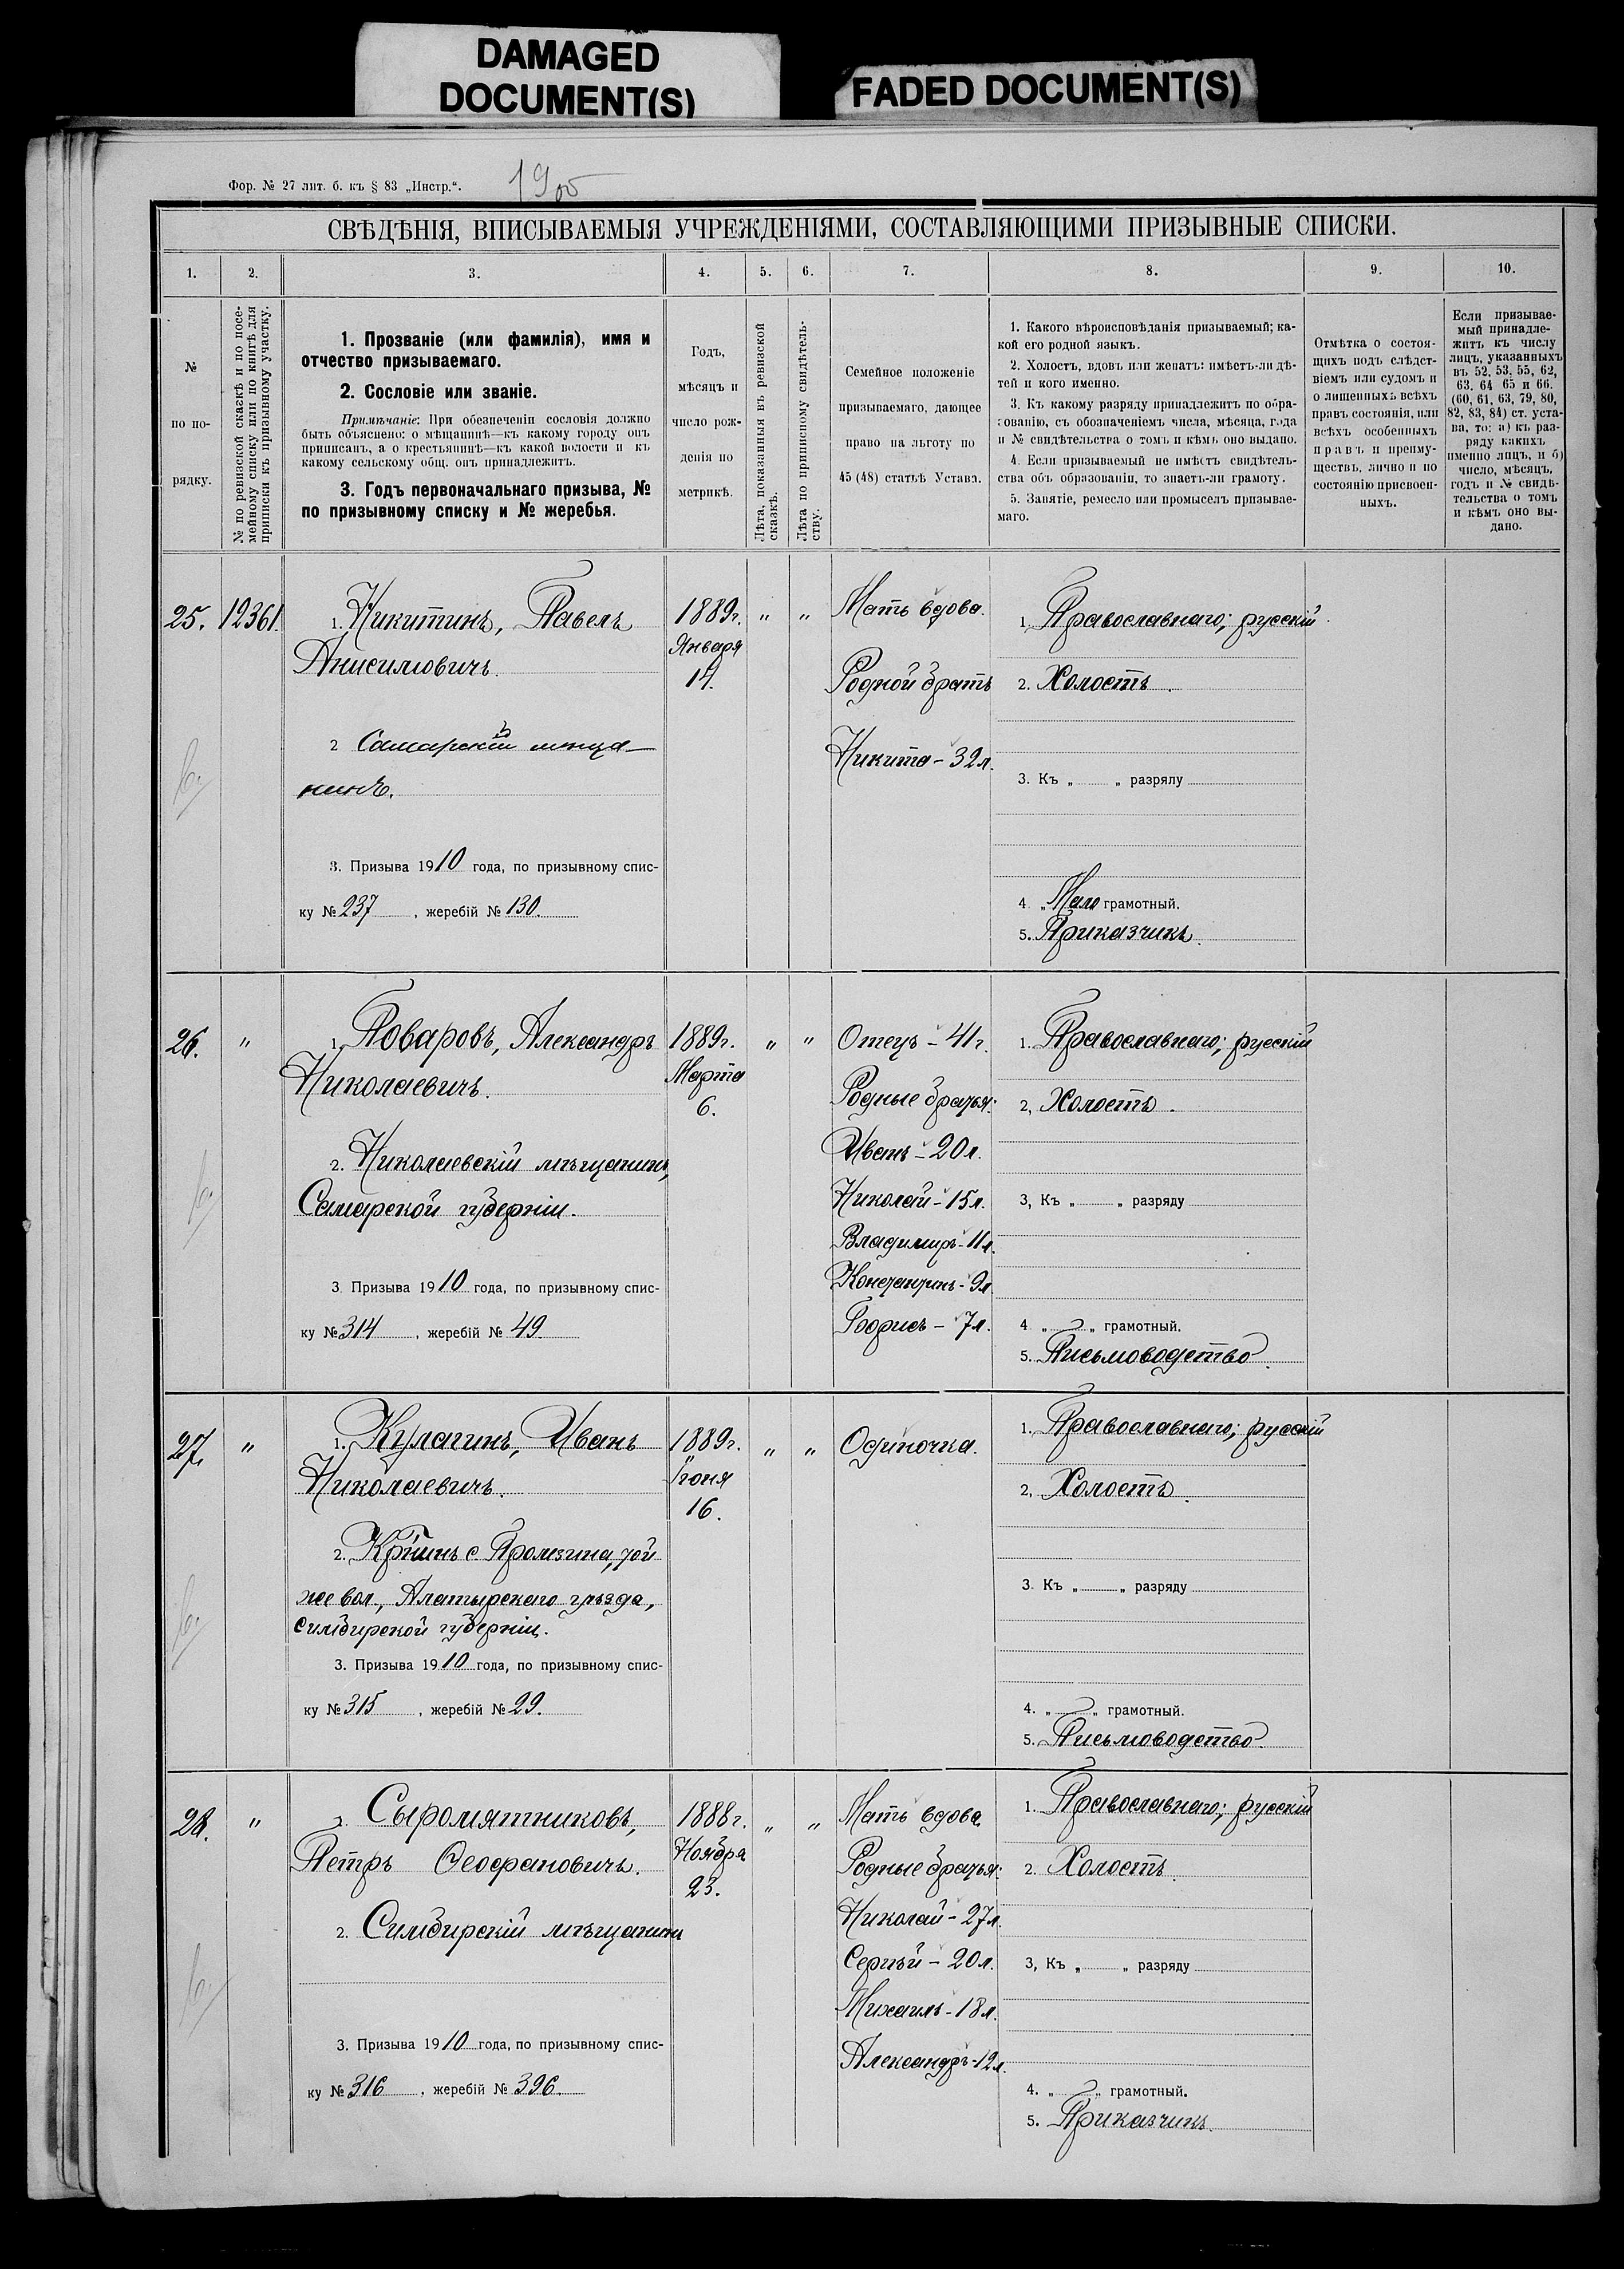 DAMAGED
DOCUMENT(S)
FADED DOCUMENT(S)
Фор. № 27 лит. б. къ § 83 „Инстр.“.
СВѢДѢНІЯ, ВПИСЫВАЕМЫЯ УЧРЕЖДЕНІЯМИ, СОСТАВЛЯЮЩИМИ ПРИЗЫВНЫЕ СПИСКИ.
1. 2. 3. 4. 5. 6. 7. 8. 9. 10.
№
по по-
рядку.
№ по ревизской сказкѣ и по посе-
мейному списку или по книгѣ для
приписки къ призывному участку.
1. Прозваніе (или фамилія), имя и
отчество призываемаго.
2. Сословіе или званіе.
Примѣчаніе: При обезпеченіи сословія должно
быть объяснено: о мѣщанинѣ—къ какому городу онъ
приписанъ, а о крестьянинѣ—къ какой волости и къ
какому сельскому общ. онъ принадлежитъ.
3. Годъ первоначальнаго призыва, №
по призывному списку и № жеребья.
Годъ,
мѣсяцъ и
число рож-
денія по
метрикѣ.
Лѣта, показанныя въ ревизской
сказкѣ.
Лѣта по приписному свидѣтель-
ству.
Семейное положеніе
призываемаго, дающее
право на льготу по
45 (48) статьѣ Устава.
1. Какого вѣроисповѣданія призываемый; ка-
кой его родной языкъ.
2. Холостъ, вдовъ или женатъ: имѣетъ-ли дѣ-
тей и кого именно.
3. Къ какому разряду принадлежитъ по обра-
зованію, съ обозначеніемъ числа, мѣсяца, года
и № свидѣтельства о томъ и кѣмъ оно выдано.
4. Если призываемый не имѣетъ свидѣтель-
ства объ образованіи, то знаетъ-ли грамоту.
5. Занятіе, ремесло или промыселъ призывае-
маго.
Отмѣтка о состоя-
щихъ подъ слѣдст-
віемъ или судомъ и
о лишенныхъ всѣхъ
правъ состоянія, или
всѣхъ особенныхъ
правъ и преиму-
ществъ, лично и по
состоянію присвоен-
ныхъ.
Если призывае-
мый принадле-
житъ къ числу
лицъ, указанныхъ
въ 52, 53, 55, 62,
63, 64 65 и 66.
(60, 61, 63, 79, 80,
82, 83, 84) ст. уста-
ва, то: а) къ раз-
ряду какихъ
именно лицъ, и б)
число, мѣсяцъ,
годъ и № свидѣ-
тельства о томъ
и кѣмъ оно вы-
дано.
25. 12361.
1. Никитинъ, Павелъ
Анисимовичъ.
2 Самарскій мѣща-
нинъ.
3. Призыва 1910 года, по призывному спис-
ку № 237, жеребій № 130.
1889г.
Января
14.
„ „
Мать вдова.
Родной братъ
Никита - 32л.
1. Православнаго; русскій.
2. Холостъ.
3. Къ „ „ разряду
4. „Мало грамотный.
5. Приказчикъ.
26. „
1. Поваровъ, Александръ
Николаевичъ.
2. Николаевскій мѣщанинъ,
Самарской губерніи.
3 Призыва 1910 года, по призывному спис-
ку № 314, жеребій № 49
1889г.
Марта
6.
„ „
Отецъ - 41г.
Родные братья:
Иванъ - 20л.
Николай - 15л.
Владимиръ - 11л.
Константинъ - 9л.
Борисъ - 7л.
1. Православнаго; русскій
2, Холостъ.
3, Къ „ „ разряду
4 „ „ грамотный.
5. Письмоводство.
27. „
1. Кулагинъ, Иванъ
Николаевичъ.
2. Кр-нинъ с. Промзина, той
же вол., Алатырскаго уѣзда,
Симбирской губерніи.
3. Призыва 1910 года, по призывному спис-
ку № 315, жеребій № 29.
1889г.
Іюня
16.
„ „
Одиночка.
1. Православнаго; русскій
2, Холостъ.
3. Къ „ „ разряду
4. „ „ грамотный.
5. Письмоводство.
28. „
Сыромятниковъ,
Петръ Ѳеофановичъ.
2. Симбирскій мѣщанинъ
3. Призыва 1910 года, по призывному спис-
ку № 316, жеребій № 396.
1888г.
Ноября
23.
„ „
Мать вдова
Родные братья:
Николай - 27л.
Сергѣй - 20л.
Михаилъ - 18л.
Александръ - 12л.
1. Православнаго; русскій
2. Холостъ.
3, Къ „ „ разряду
4. „ „ грамотный.
5. Приказчикъ.